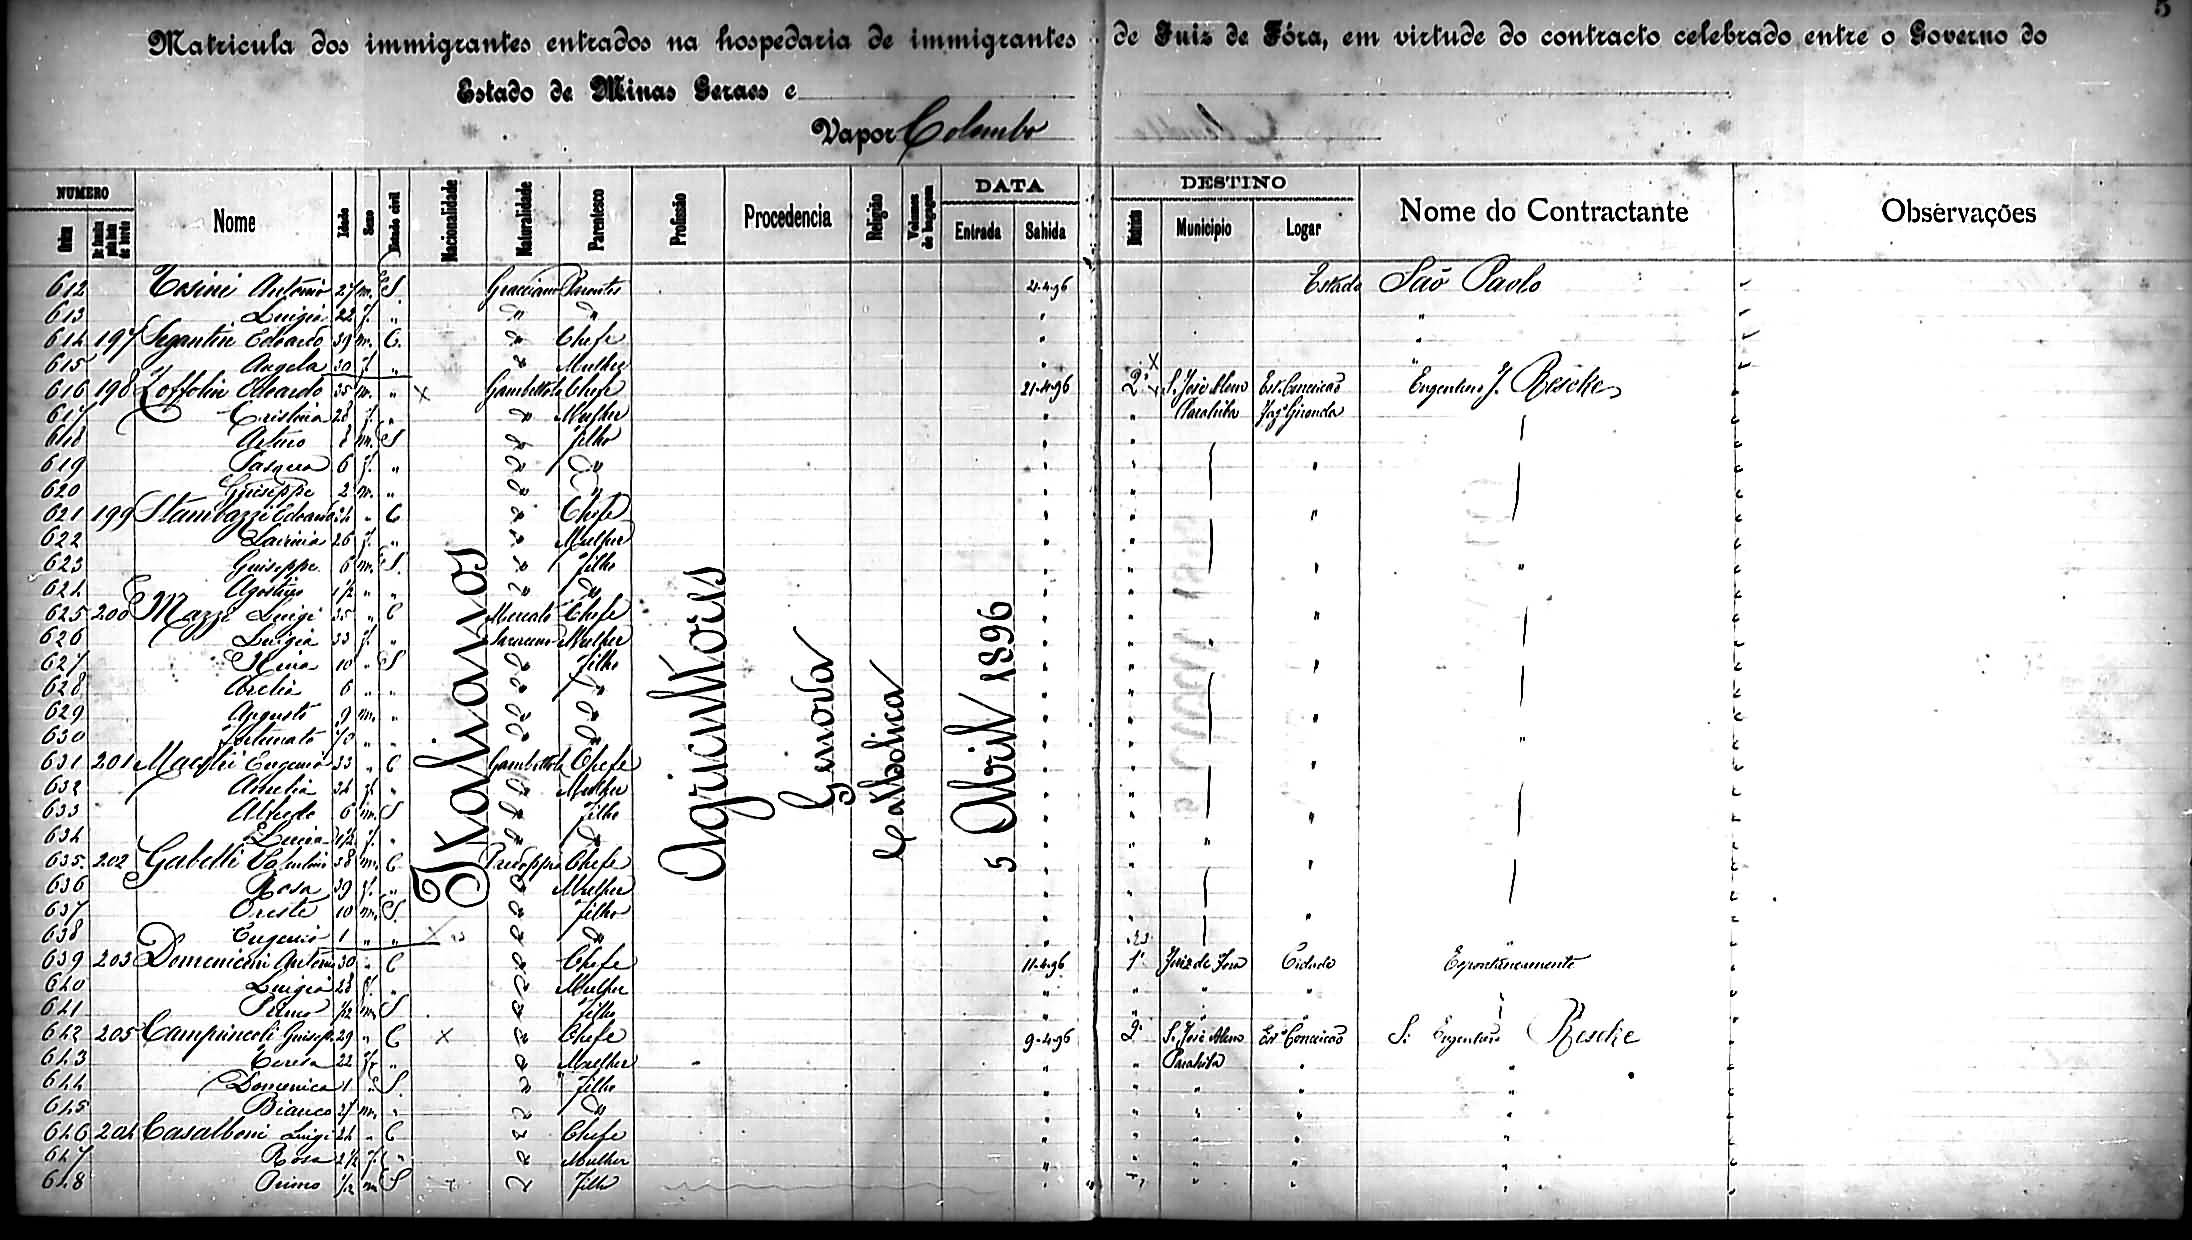 5
Matricula dos immigrantes entrados na hospedaria de immigrantes de Juiz de Fóra, em virtude do contracto celebrado entre o Governo do
Estado de Minas Geraes e
Vapor Colombo
NUMERO Nome Idade Sexo Estado civil Nacionalidade Naturalidade Parentesco Profissão Procedencia Religião Volumes de bagagem DATA Entrada Sahida DESTINO Districto Municipio Logar Nome do Contractante Observações
Italianos Agricultores Genova Catholica 5 Abril 1896
612 Tosini Antonio 27 m. S. Parentes 21-4-96 Estado São Paolo
613 Luigia 22 f. " " "
614 197 Segantin Edoardo 39 m. C. " Chefe " "
615 Angela 30 f. " " Mulher " "
616 198 Zoffolin 35 m. " Gambettola Chefe 21-4-96 2ª S. José Alem Est. Conceicão Engenheiro J. Reschke
617 Cristina 28 f. " " Mulher " Parahiba Faz.
618 Arturo 8 m. S " Filho "
619 Pasqua 6 f. " " " "
620 Giuseppe 2 m. " " " "
621 199 24 " C " Chefe "
622 26 f. " " Mulher "
623 Guiseppe 6 m. S. " Filho "
624 Agostino 1/2 " " " " "
625 200 Mazzi Luigi 35 " C Mercato Chefe "
626 Luigia 33 f. " Saraceno Mulher "
627 10 " S " Filho "
628 6 " " " " "
629 Augusto 9 m. " " " "
630 Fortunato " " " " "
631 201 Eugenio 33 " C Gambettola Chefe "
632 Amelia 34 f. " " Mulher "
633 Alfredo 6 m. S " Filho "
634 1/2 f. " " " "
635 202 Gabelli 38 m. C Predappio Chefe "
636 Rosa 39 f. " " Mulher "
637 Oreste 10 m. S. " Filho "
638 Eugenio 1 " " " " "
639 203 Domeniconi Antonio 30 " C " Chefe 11-4-96 1ª Juiz de Fora Cidade Espontaneamente
640 Luigia 28 f. " " Mulher " " " "
641 Primo 1/2 m. S " Filho " " " "
642 205 29 " C " Chefe 9-4-96 2ª S. José Alem Est. Conceicão S. Engenheiro Reschke
643 Teresa 22 f. " " Mulher " " Parahiba " "
644 Domenica 1 " S. " Filho " " " " "
645 Bianco 27 m. " " " " " " " "
646 204 Casalboni Luigi 24 " C " Chefe " " " " "
647 Rosa 21/2 f. " " Mulher " " " " "
648 Primo 1/2 m S " Filho " " " " "